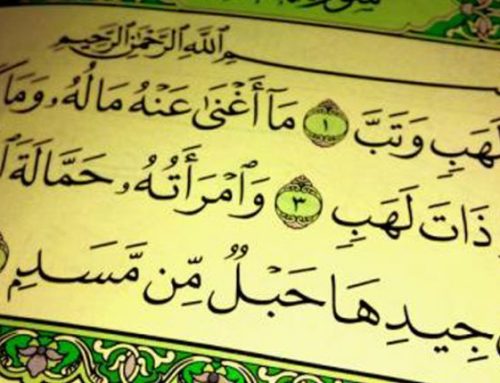 سورة
ٱللَّهِ ٱلرَّحْمَٰنِ ٱلرَّحِيمِ
لَهَبٍ وَتَبَّ ١ مَآ أَغْنَىٰ عَنْهُ مَالُهُۥ وَمَا
ذَاتَ لَهَبٍ ٣ وَٱمْرَأَتُهُۥ حَمَّالَةَ
جِيدِهَا حَبْلٌ مِّن مَّسَدٍ